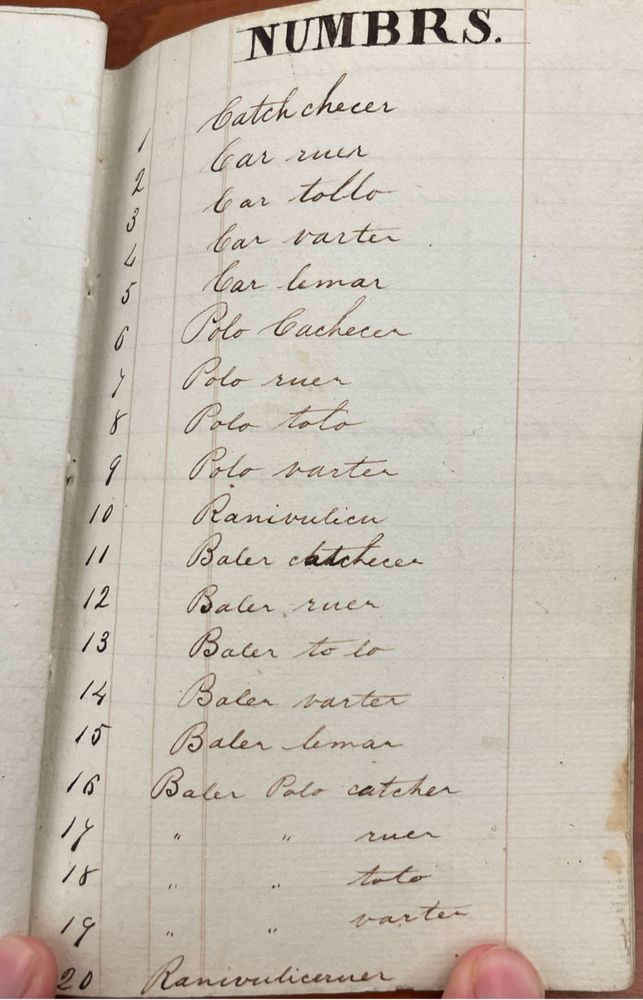 NUMBRS.
1 Catchchecer
2 Car ruer
3 Car tollo
4 Car varter
5 Car lemar
6 Polo Cachecer
7 Polo ruer
8 Polo toto
9 Polo varter
10 Ranivulicu
11 Baler catchecer
12 Baler ruer
13 Baler to lo
14 Baler varter
15 Baler lemar
16 Baler Polo catcher
17 " " ruer
18 " " toto
19 " " varter
20 Ranivuliceruer